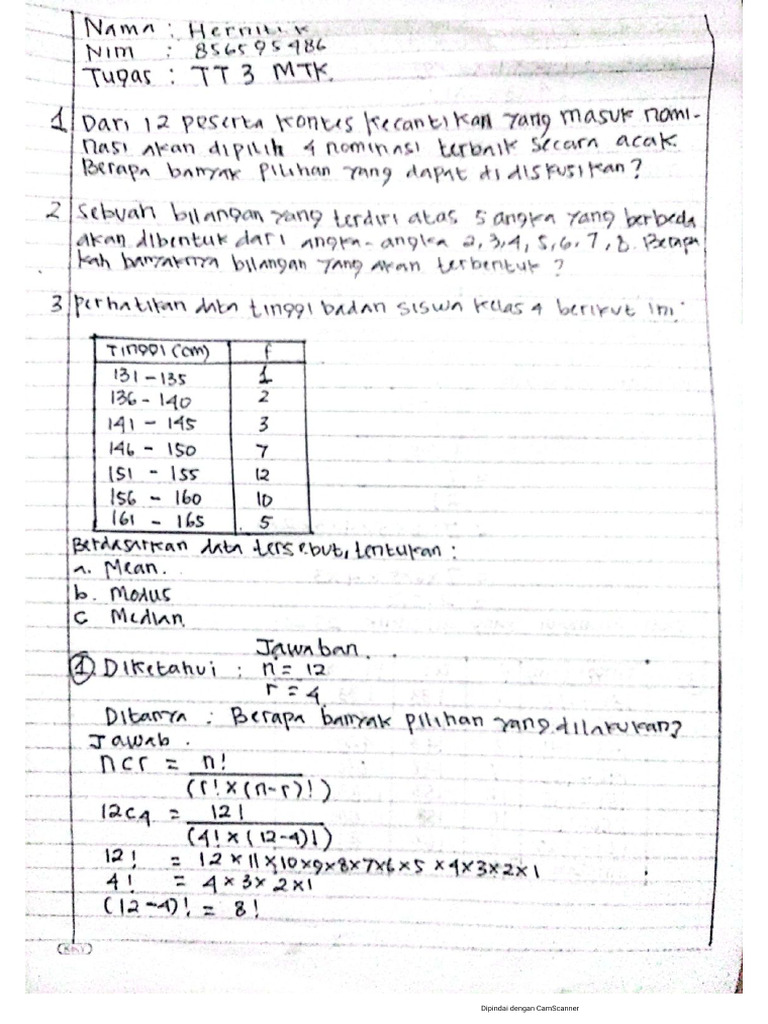 Nama : Hernilik
Nim : 856595486
Tugas : TT 3 MTK.
1 Dari 12 peserta kontes kecantikan yang masuk nomi-
nasi akan dipilih 4 nominasi terbaik secara acak.
Berapa banyak pilihan yang dapat di diskusikan?
2 Sebuah bilangan yang terdiri atas 5 angka yang berbeda
akan dibentuk dari angka-angka 2,3,4,5,6,7,8. Berapa
kah banyaknya bilangan yang akan terbentuk ?
3 perhatikan data tinggi badan siswa kelas 4 berikut ini :
Tinggi (cm) f
131 - 135 1
136 - 140 2
141 - 145 3
146 - 150 7
151 - 155 12
156 - 160 10
161 - 165 5
Berdasarkan data tersebut, tentukan :
a. Mean.
b. Modus
c Median.
Jawaban.
1. Diketahui : n = 12
r = 4
Ditanya : Berapa banyak pilihan yang dilakukan?
Jawab.
ncr = n!
(r! × (n-r)!)
12c4 = 12!
(4! × (12-4)!)
12! = 12 × 11 × 10 × 9 × 8 × 7 × 6 × 5 × 4 × 3 × 2 × 1
4! = 4 × 3 × 2 × 1
(12-4)! = 8!
Dipindai dengan CamScanner